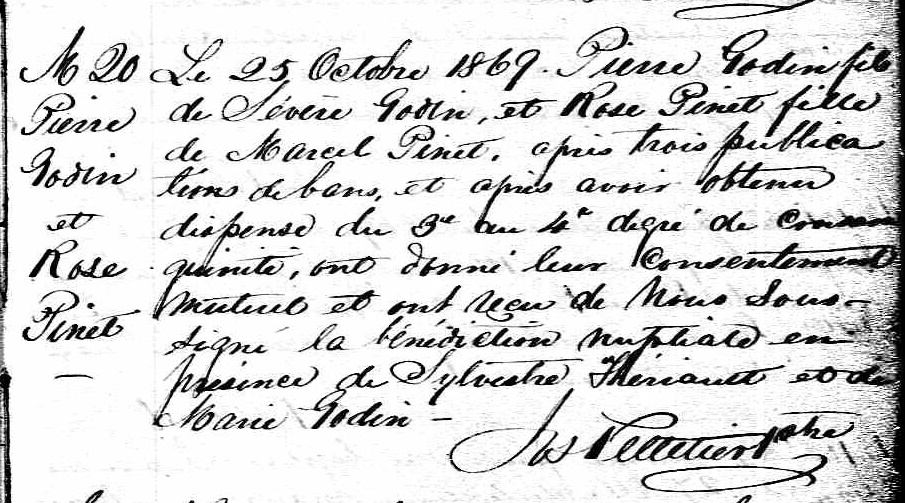 M 20
Pierre
Godin
et
Rose
Pinet
—
Le 25 Octobre 1869. Pierre Godin fils
de Sévère Godin, et Rose Pinet fille
de Marcel Pinet, après trois publica
tions de bans, et après avoir obtenu
dispense du 3e au 4e degré de consan
guinité, ont donné leur consentement
mutuel et ont reçu de Nous Sous-
signé la bénédiction nuptiale en
présence de Sylvestre Thériault et de
Marie Godin —
Jos Pelletier Ptre